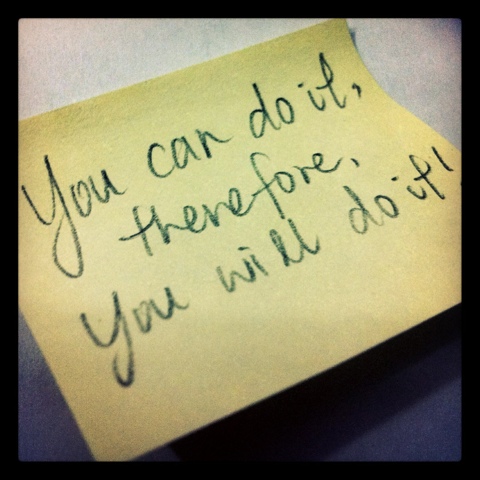 You can do it,
therefore,
you will do it!